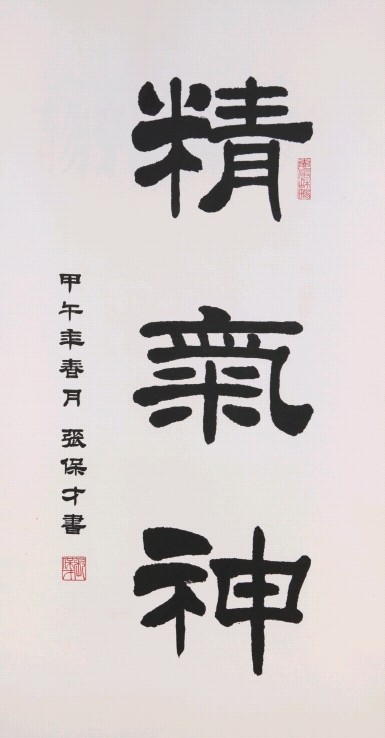 精氣神
甲午年春月 張保才書